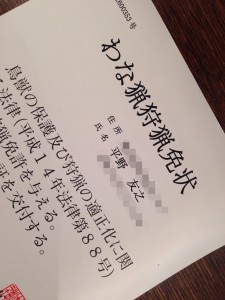 000353 号
わな猟狩猟免状
住所
氏名 平野 友之
鳥獣の保護及び狩猟の適正化に関
る法律(平成14年法律第88号)
猟免許を与える。
証を交付する。